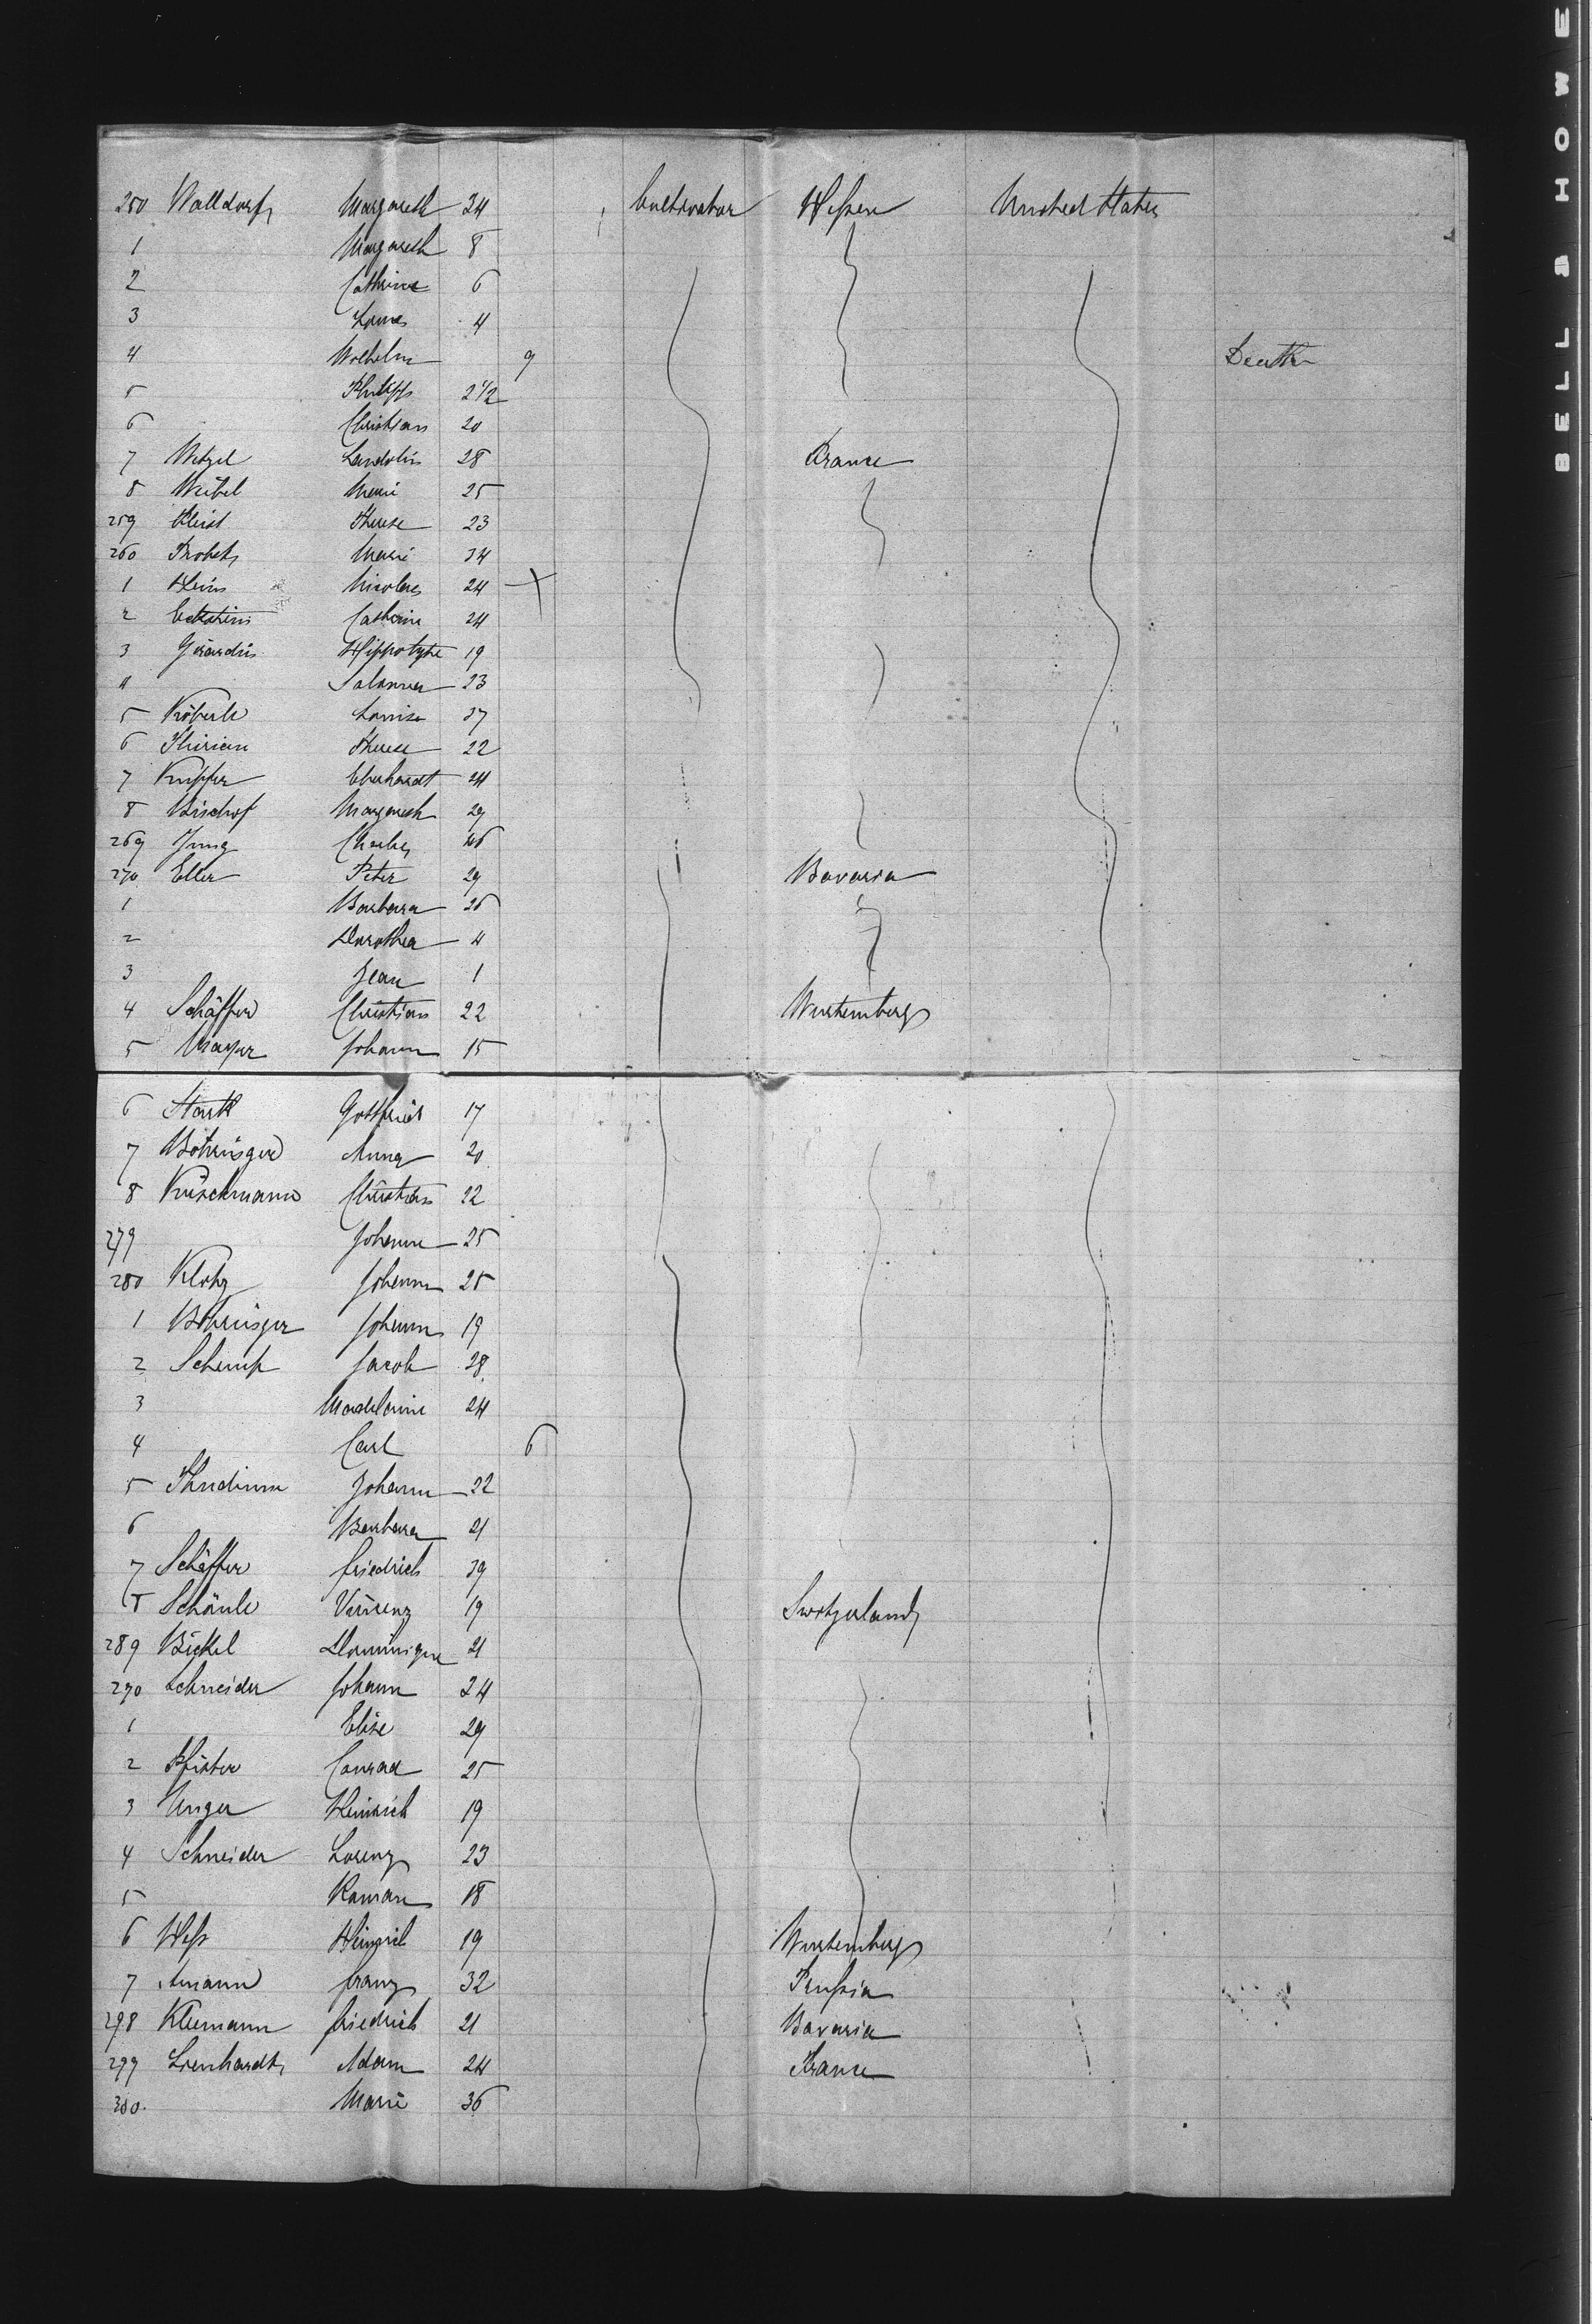 250 Walldorf Margareth 34 Cultivator Hessen United States
1 Margareth 8
2 Cathrine 6
3 Louis 4
4 Wilhelm 9 Death
5 Philipp 2 1/2
6 Christian 20
7 Wetzel Landolin 28 France
8 Weibel Marie 25
259 Therese 23
260 Probst Marie 34
1 Heim Nicolas 24
2 Eckstein Catherine 24
3 Girardin Hippolyte 19
4 Salomea 23
5 Köberle Louise 37
6 Thirian Therese 22
7 Kupfer Eberhardt 24
8 Bischof Margareth 29
269 Jung Charles 46
270 Eller Peter 29 Bavaria
1 Barbara 26
2 Dorothea 4
3 Jean 1
4 Schäffer Christian 22 Wurtemberg
5 Mayer Johann 15
6 Stark Gottfried 17
7 Böhringer Anna 20
8 Kürschmann Christian 22
279 Johanne 25
280 Klotz Johann 25
1 Böhringer Johann 19
2 Schempp Jacob 28
3 Madelaine 24
4 Carl 6
5 Thudium Johann 22
6 Barbara 21
7 Schäffer Friedrich 39
8 Schäule Vincenz 19 Switzerland
289 Bickel Dominique 21
290 Schneider Johann 24
1 Elise 29
2 Pfister Conrad 25
3 Unger Heinrich 19
4 Schneider Lorenz 23
5 Roman 18
6 Hess Heinrich 19 Wurtemberg
7 Amann Franz 32 Prussia
298 Kleemann Friedrich 21 Bavaria
299 Lienhardt Adam 24 France
300. Marie 36
BELL & HOWE